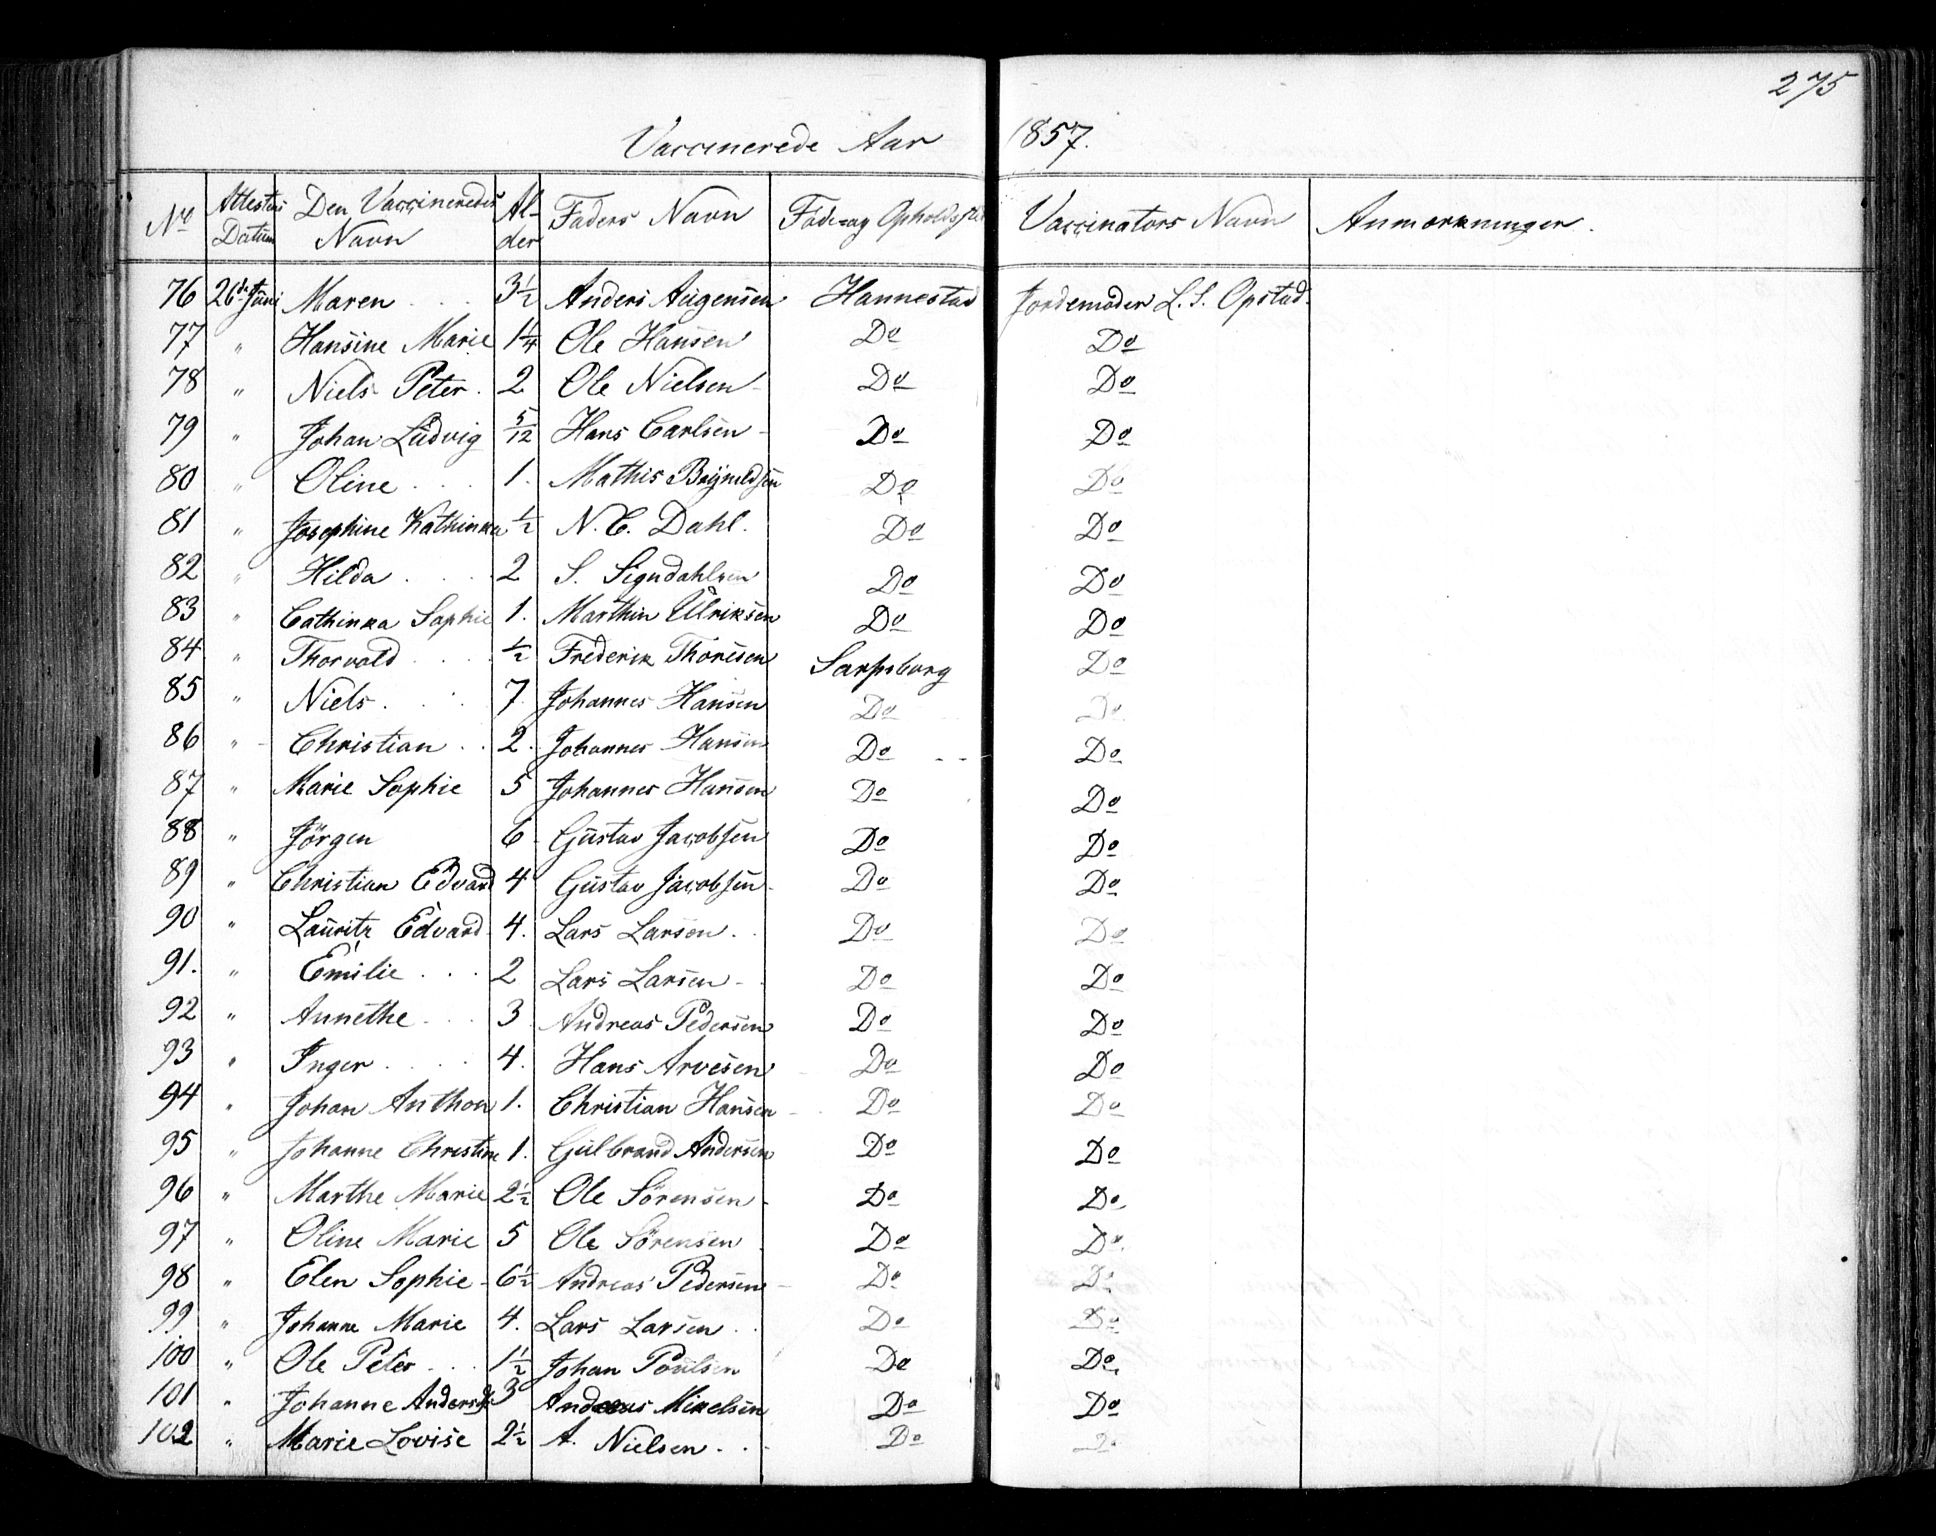 275
Vaccinerede Aar 1857.
No Attestens Datum Den Vaccineredes Navn Alder Faders Navn Føde- og Opholdssted Vaccinators Navn Anmærkninger.
76 26de Juni Maren 3½ Anders Augensen Hannestad Jordemoder L. S. Opstad.
77 " Hansine Marie 1¼ Ole Hansen Do Do
78 " Niels Peter. 2 Ole Nielsen Do Do
79 " Johan Ludvig 5/12 Hans Carlsen Do Do
80 " Oline 1. Mathis Do Do
81 " Josephine Kathinka ½ N. C. Dahl. Do Do
82 " Hilda 2 S. Signdahlsen Do Do
83 " Cathinka Sophie 1. Marthin Ulriksen Do Do
84 " Thorvald ½ Frederik Thoresen Sarpsborg Do
85 " Niels. 7 Johannes Hansen Do Do
86 " Christian 2. Johannes Hansen Do Do
87 " Marie Sophie 5 Johannes Hansen Do Do
88 " Jörgen 6 Gustav Jacobsen Do Do
89 " Christian Edvard 4 Gustav Jacobsen Do Do
90 " Lauritz Edvard 4. Lars Larsen. Do Do
91. " Emilie 2 Lars Larsen Do Do
92 " Annethe 3 Andreas Pedersen Do Do
93 " Inger 4. Hans Arvesen Do Do
94 " Johan Anthon 1. Christian Hansen Do Do
95 " Johanne Christine 1. Gulbrand Andersen Do Do
96 " Marthe Marie 2½ Ole Sörensen Do Do
97 " Oline Marie 5 Ole Sörensen Do Do
98 " Elen Sophie 6½ Andreas Pedersen Do Do
99 " Johanne Marie 4. Lars Larsen Do Do
100 " Ole Peter 1½ Johan Poulsen Do Do
101 " Johanne 3 Andreas Mikelsen Do Do
102 " Marie Lovise 2½ A. Nielsen Do Do